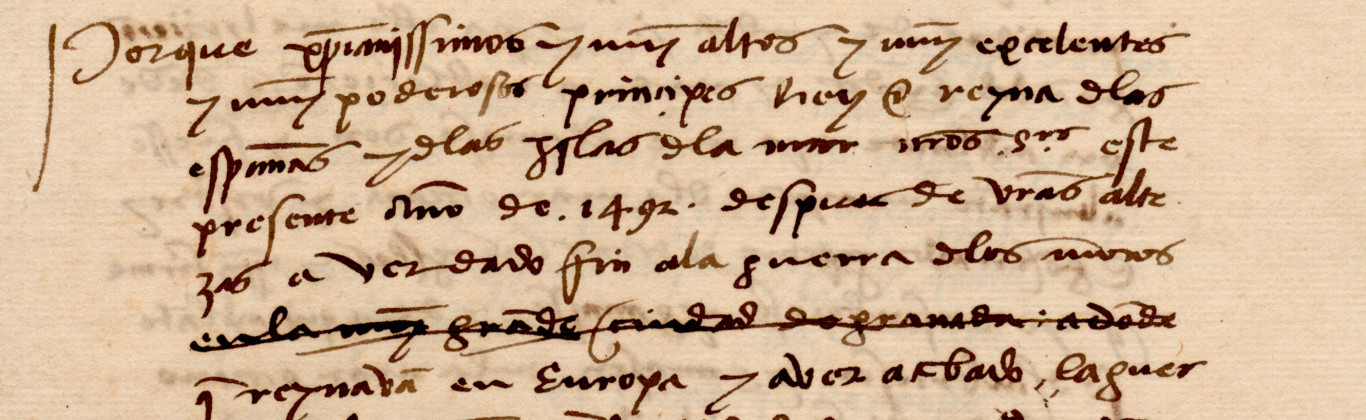 Porque xp̄ianissimos y muy altos y muy excelentes
y muy poderosos principes Rey e reyna dlas
españas y dlas yslas dla mar nr̄os s.res este
presente año de .1492. despues de vr̄as alte
zas aver dado fin ala guerra dlos moros
en la muy grāde ciudad de granada: adōde
q̄ reynavā en Europa y aver acabado la guer